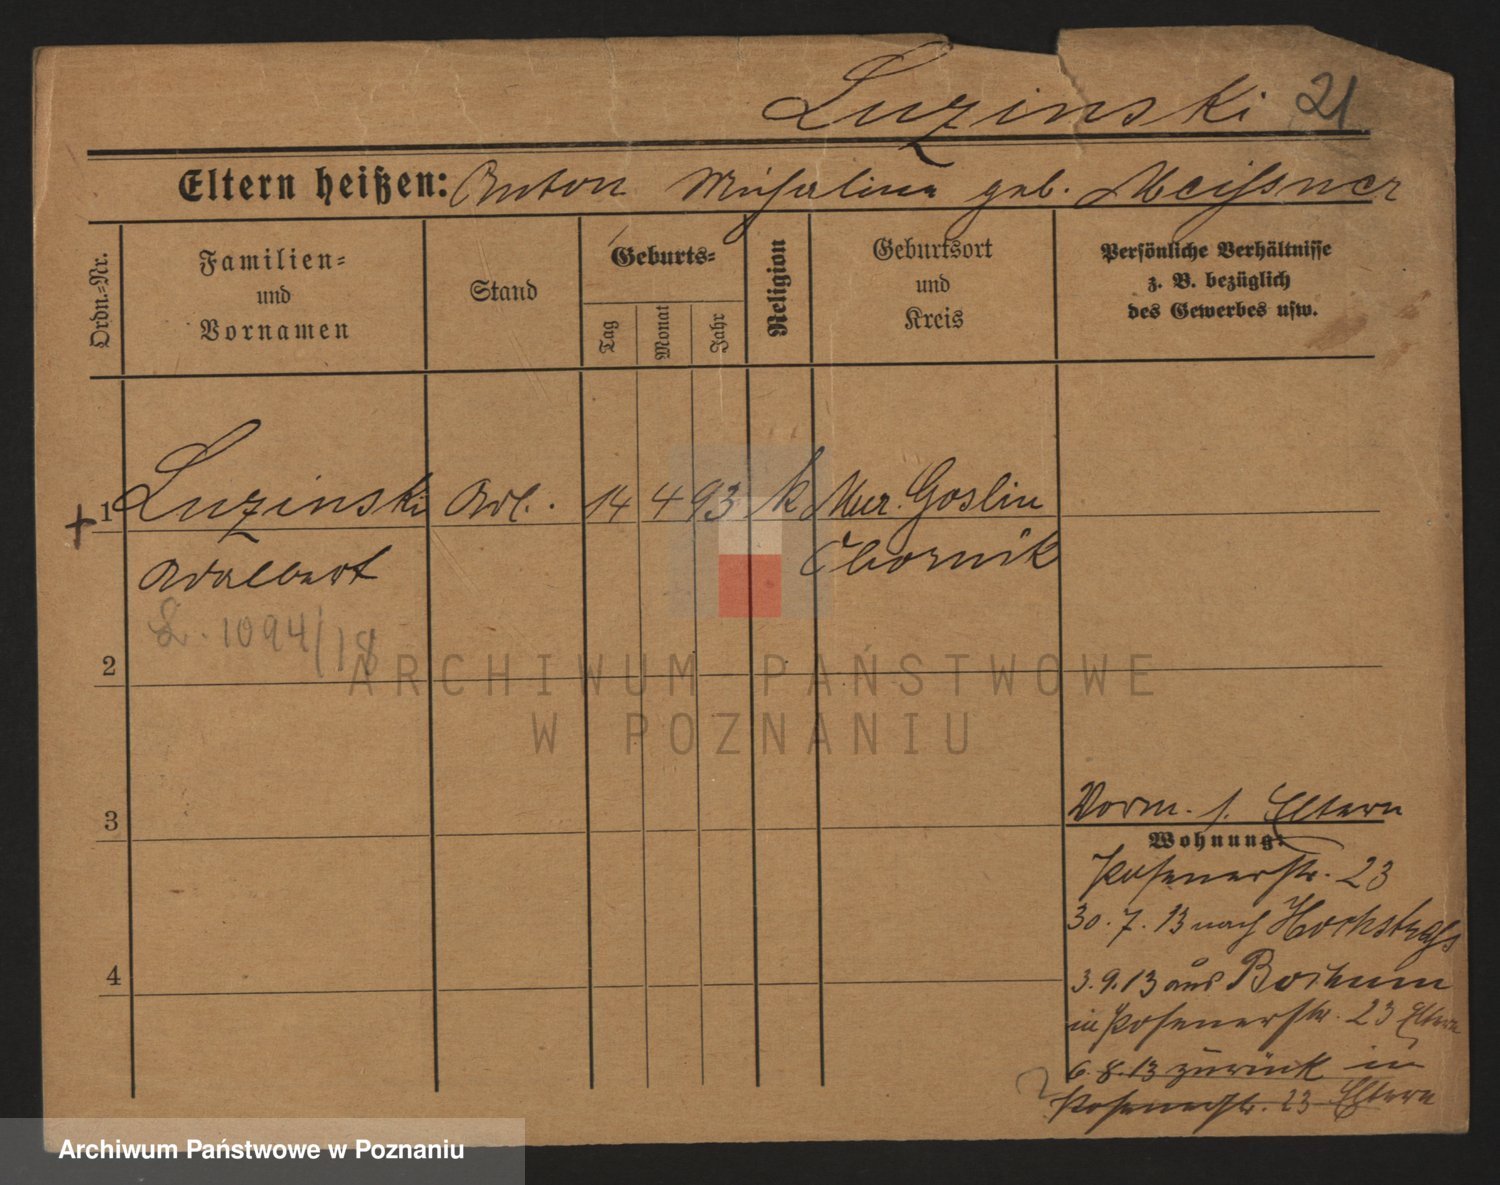 Luzinski 21
Eltern heißen: Anton Michalina geb. Meissner
Ordn.-Nr.
Familien-
und
Vornamen
Stand
Geburts-
Tag
Monat
Jahr
Religion
Geburtsort
und
Kreis
Persönliche Verhältnisse
z. B. bezüglich
des Gewerbes usw.
+ 1 Luzinski Arb. 14 4 93 k Mur. Goslin
Adalbert Obornik
L. 1094/18
2
3
4
Vorm. s. Eltern
Wohnung:
Posenerstr. 23
30. 7. 13 nach
3. 9. 13 aus Bochum
in Posenerstr. 23 Eltern
6. 8. 13 zurück in
Posenerstr. 23 Eltern
ARCHIWUM PAŃSTWOWE
W POZNANIU
Archiwum Państwowe w Poznaniu